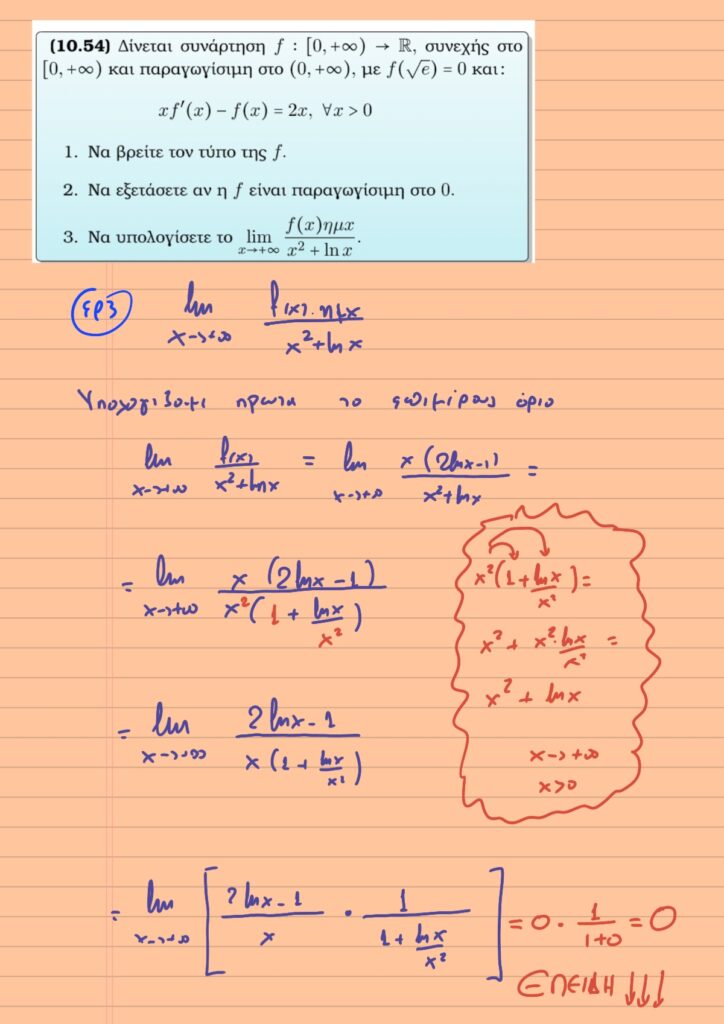 (10.54) Δίνεται συνάρτηση f : [0, +∞) → ℝ, συνεχής στο
[0, +∞) και παραγωγίσιμη στο (0, +∞), με f(√e) = 0 και:
xf′(x) − f(x) = 2x, ∀x > 0
1. Να βρείτε τον τύπο της f.
2. Να εξετάσετε αν η f είναι παραγωγίσιμη στο 0.
3. Να υπολογίσετε το lim x→+∞ f(x)ημx / (x² + ln x).
ερ3 lim x→+∞ f(x)·ημx / (x²+lnx)
Υπολογιζουμε πρωτα το επιμέρους όριο
lim x→+∞ f(x) / (x²+lnx) = lim x→+∞ x(2lnx-1) / (x²+lnx) =
= lim x→+∞ x (2lnx-1) / x²(1 + lnx/x²)
x²(1+lnx/x²)=
x² + x²·lnx/x² =
x² + lnx
x→+∞
x>0
= lim x→+∞ (2lnx-1) / x(1+lnx/x²)
= lim x→+∞ [ (2lnx-1)/x · 1/(1+lnx/x²) ] = 0 · 1/(1+0) = 0
ΕΠΕΙΔΗ ↓↓↓